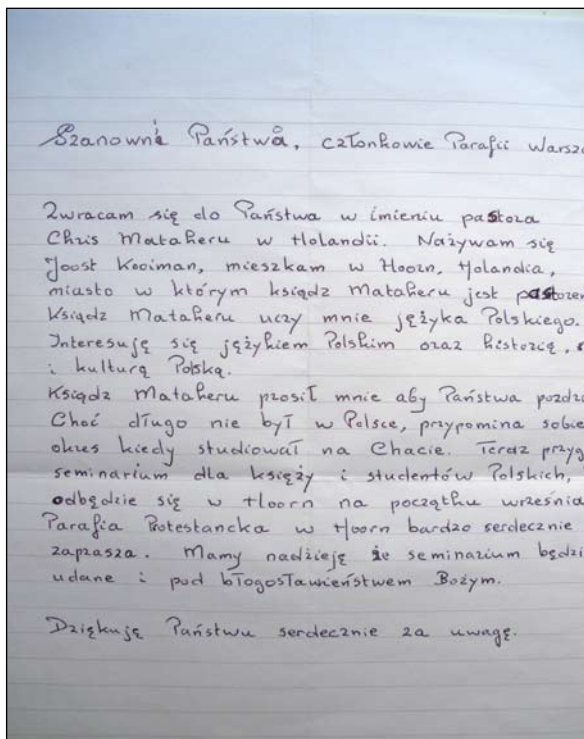 Szanowni Państwo, członkowie Parafii Warsza
Zwracam się do Państwa w imieniu pastora
Chris Mataheru w Holandii. Nażywam się
Joost Kooiman, mieszkam w Hoorn, Holandia,
miasto w którym ksiądz Mataheru jest pastorem
Ksiądz Mataheru uczy mnie jężyka Polskiego.
Interesuję się jężykiem Polskim oraz historią,
i kulturą Polską.
Ksiądz Mataheru prosił mnie aby Państwa pozdro
Choć długo nie był w Polsce, przypomina sobie
okres kiedy studiował na Chacie. Teraz przyg
seminarium dla księży i studentów Polskich,
odbędzie się w Hoorn na początku września
Parafia Protestancka w Hoorn bardzo serdecznie
zaprasza. Mamy nadzieję że seminarium będzi
udane i pod błogosławieństwem Bożym.
Dziękuję Państwu serdecznie za uwagę.